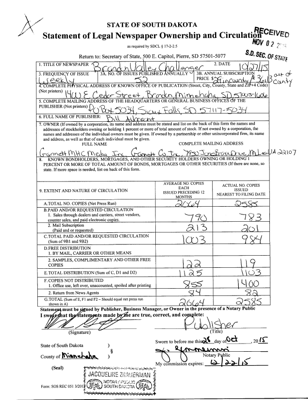 STATE OF SOUTH DAKOTA
Statement of Legal Newspaper Ownership and Circulation
as required by SDCL 17-2-2.5
RECEIVED
NOV 02
S.D. SEC. OF STATE
Return to: Secretary of State, 500 E. Capitol, Pierre, SD 57501-5077
1. TITLE OF NEWSPAPER Brandon Valley Challenger
10/27/15
3. FREQUENCY OF ISSUE Weekly
3A. NO. OF ISSUES PUBLISHED ANNUALLY 52
3B. ANNUAL SUBSCRIPTION PRICE
4. COMPLETE PHYSICAL ADDRESS OF KNOWN OFFICE OF PUBLICATION (Street, City, County, State and ZIP+4 Code) (Not printers)
E Cedar Street, Brandon, Minnehaha, SD
5. COMPLETE MAILING ADDRESS OF THE HEADQUARTERS OR GENERAL BUSINESS OFFICES OF THE PUBLISHER (Not printer)
PO Box 5034, Sioux Falls, SD 57117-5034
6. FULL NAME OF PUBLISHER: Bill Albrecht
7. OWNER (If owned by a corporation, its name and address must be stated and also on the back of this form the names and addresses of stockholders owning or holding 1 percent or more of total amount of stock. If not owned by a corporation, the names and addresses of the individual owners must be given. If owned by a partnership or other unincorporated firm, its name and address, as well as that of each individual must be given.
FULL NAME COMPLETE MAILING ADDRESS
Gannett Co Inc. 7950 Jones Branch Dr. McLean VA 22107
8. KNOWN BONDHOLDERS, MORTGAGEES, AND OTHER SECURITY HOLDERS OWNING OR HOLDING 1 PERCENT OR MORE OF TOTAL AMOUNT OF BONDS, MORTGAGES OR OTHER SECURITIES (If there are none, so state. If more space is needed, list on back of this form.
9. EXTENT AND NATURE OF CIRCULATION
AVERAGE NO. COPIES EACH ISSUED PRECEDING 12 MONTHS
ACTUAL NO. COPIES ISSUED NEAREST TO FILING DATE
A. TOTAL NO. COPIES (Net Press Run) 2664 2585
B. PAID AND/OR REQUESTED CIRCULATION
1. Sales through dealers and carriers, street vendors, counter sales, and paid electronic copies. 790 783
2. Mail Subscription (Paid and or requested) 213 201
C. TOTAL PAID AND/OR REQUESTED CIRCULATION (Sum of 9B1 and 9B2) 1003 984
D. FREE DISTRIBUTION
1. BY MAIL, CARRIER OR OTHER MEANS
2. SAMPLES, COMPLIMENTARY AND OTHER FREE COPIES 122 119
E. TOTAL DISTRIBUTION (Sum of C, D1 and D2) 1125 1103
F. COPIES NOT DISTRIBUTED
1. Office use, left over, unaccounted, spoiled after printing 1400
2. Return from News Agents 84 82
G. TOTAL (Sum of E, F1 and F2 - Should equal net press run shown in A) 2664 2585
Statement must be signed by Publisher, Business Manager, or Owner in the presence of a Notary Public
I swear that the statements made by me are true, correct, and complete:
Publisher
(Signature) (Title)
State of South Dakota
County of Minnehaha
Sworn to before me this day of Oct 2015
Notary Public
My commission expires: 12/22/15
(Seal)
JACQUELINE ZIMMERMAN
NOTARY PUBLIC
SOUTH DAKOTA
SEAL